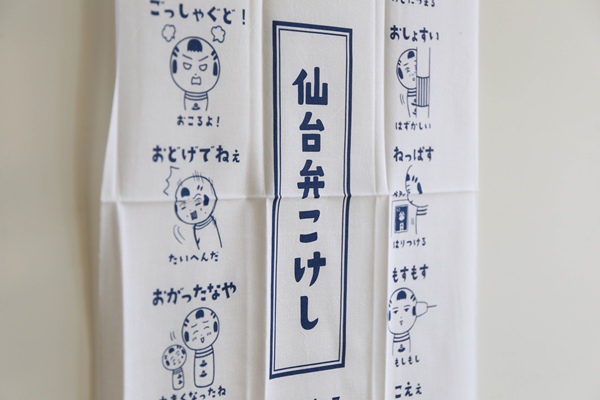 ごっしゃぐど!
おこるよ!
おどげでねぇ
たいへんだ
おがったなや
大きくなったね
仙台弁こけし
おしょすい
はずかしい
ねっぱす
はりつける
もすもす
もしもし
こえぇ